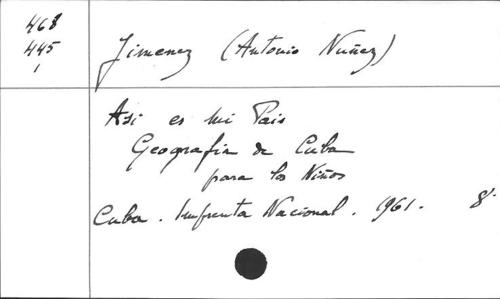 468
445
1
Jimenez (Antonio Nuñez)
Asi es mi Pais
Geografia de Cuba
para los Niños
Cuba. Imprenta Nacional. 1961. 8°